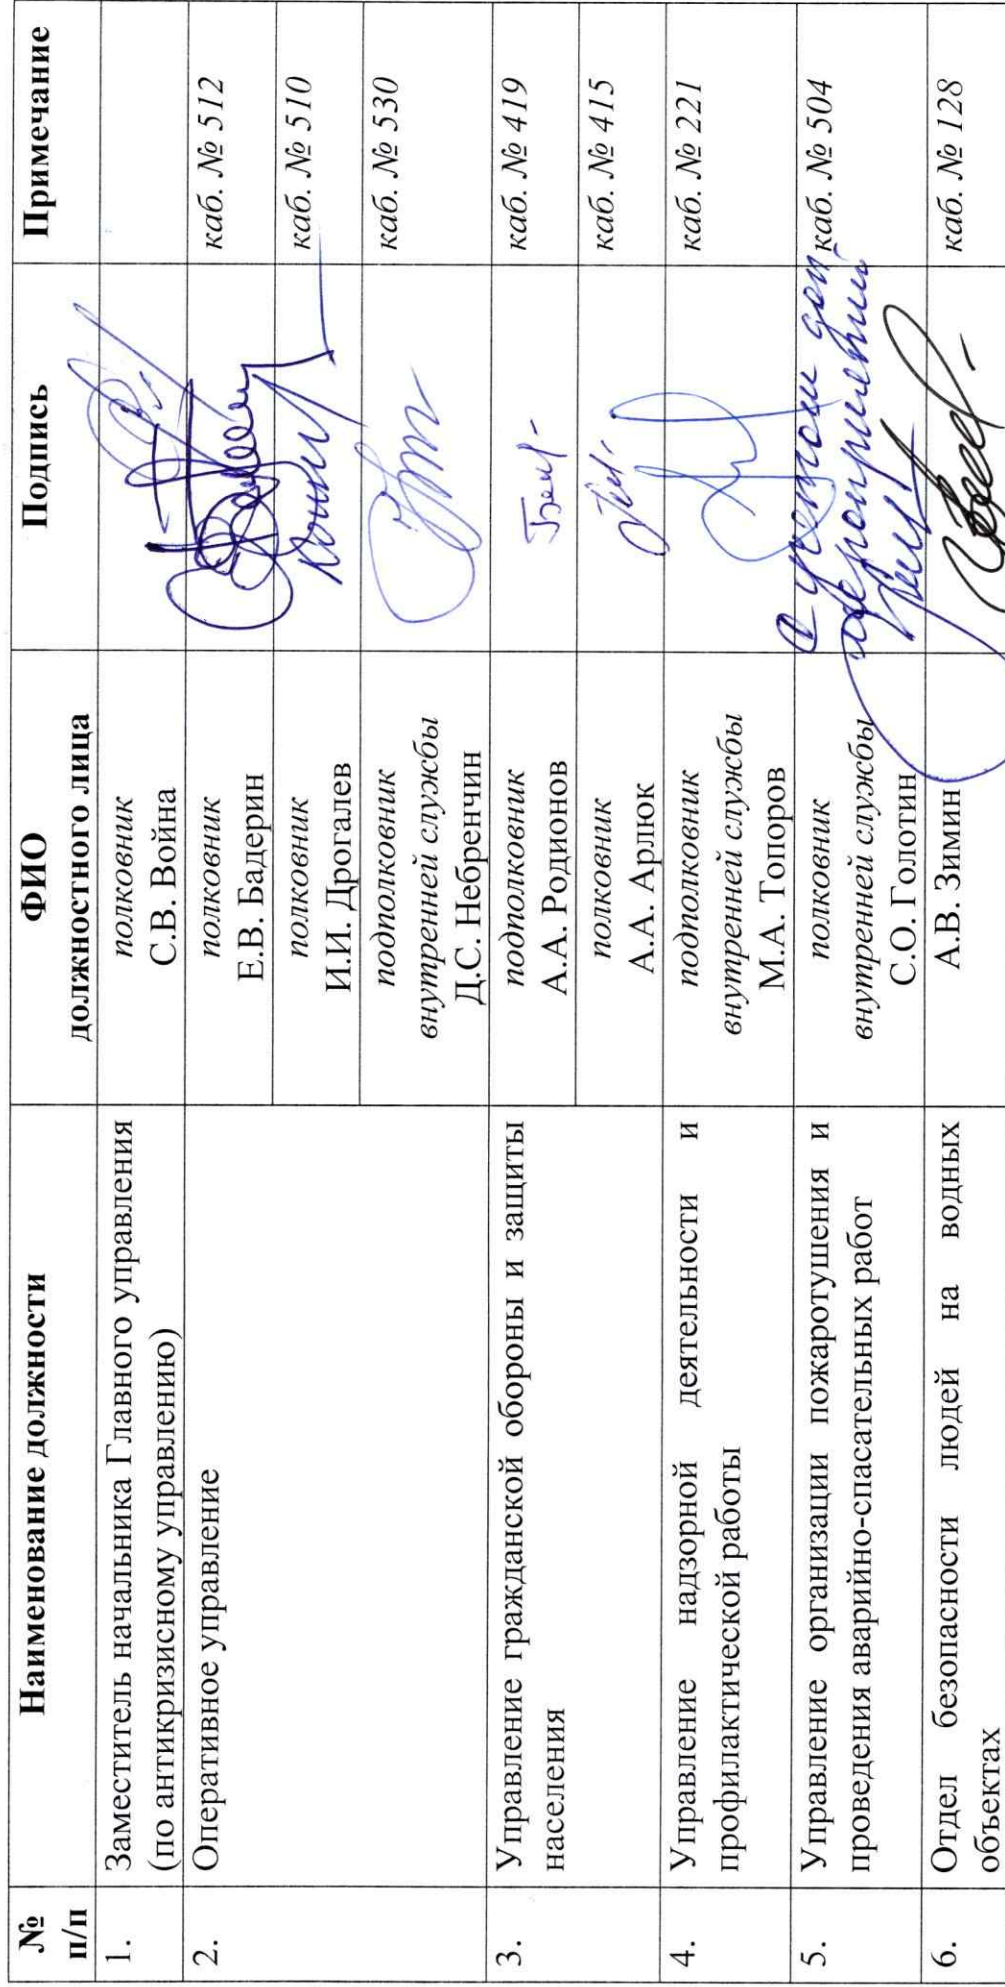 № п/п
Наименование должности
ФИО
должностного лица
Подпись
Примечание
1.
Заместитель начальника Главного управления
(по антикризисному управлению)
полковник
С.В. Война
2.
Оперативное управление
полковник
Е.В. Бадерин
каб. № 512
полковник
И.И. Дрогалев
каб. № 510
подполковник
внутренней службы
Д.С. Небренчин
каб. № 530
3.
Управление гражданской обороны и защиты
населения
подполковник
А.А. Родионов
каб. № 419
полковник
А.А. Арлюк
каб. № 415
4.
Управление надзорной деятельности и
профилактической работы
подполковник
внутренней службы
М.А. Топоров
каб. № 221
5.
Управление организации пожаротушения и
проведения аварийно-спасательных работ
полковник
внутренней службы
С.О. Голотин
с учетом доп
мероприятий
каб. № 504
6.
Отдел безопасности людей на водных
объектах
А.В. Зимин
каб. № 128